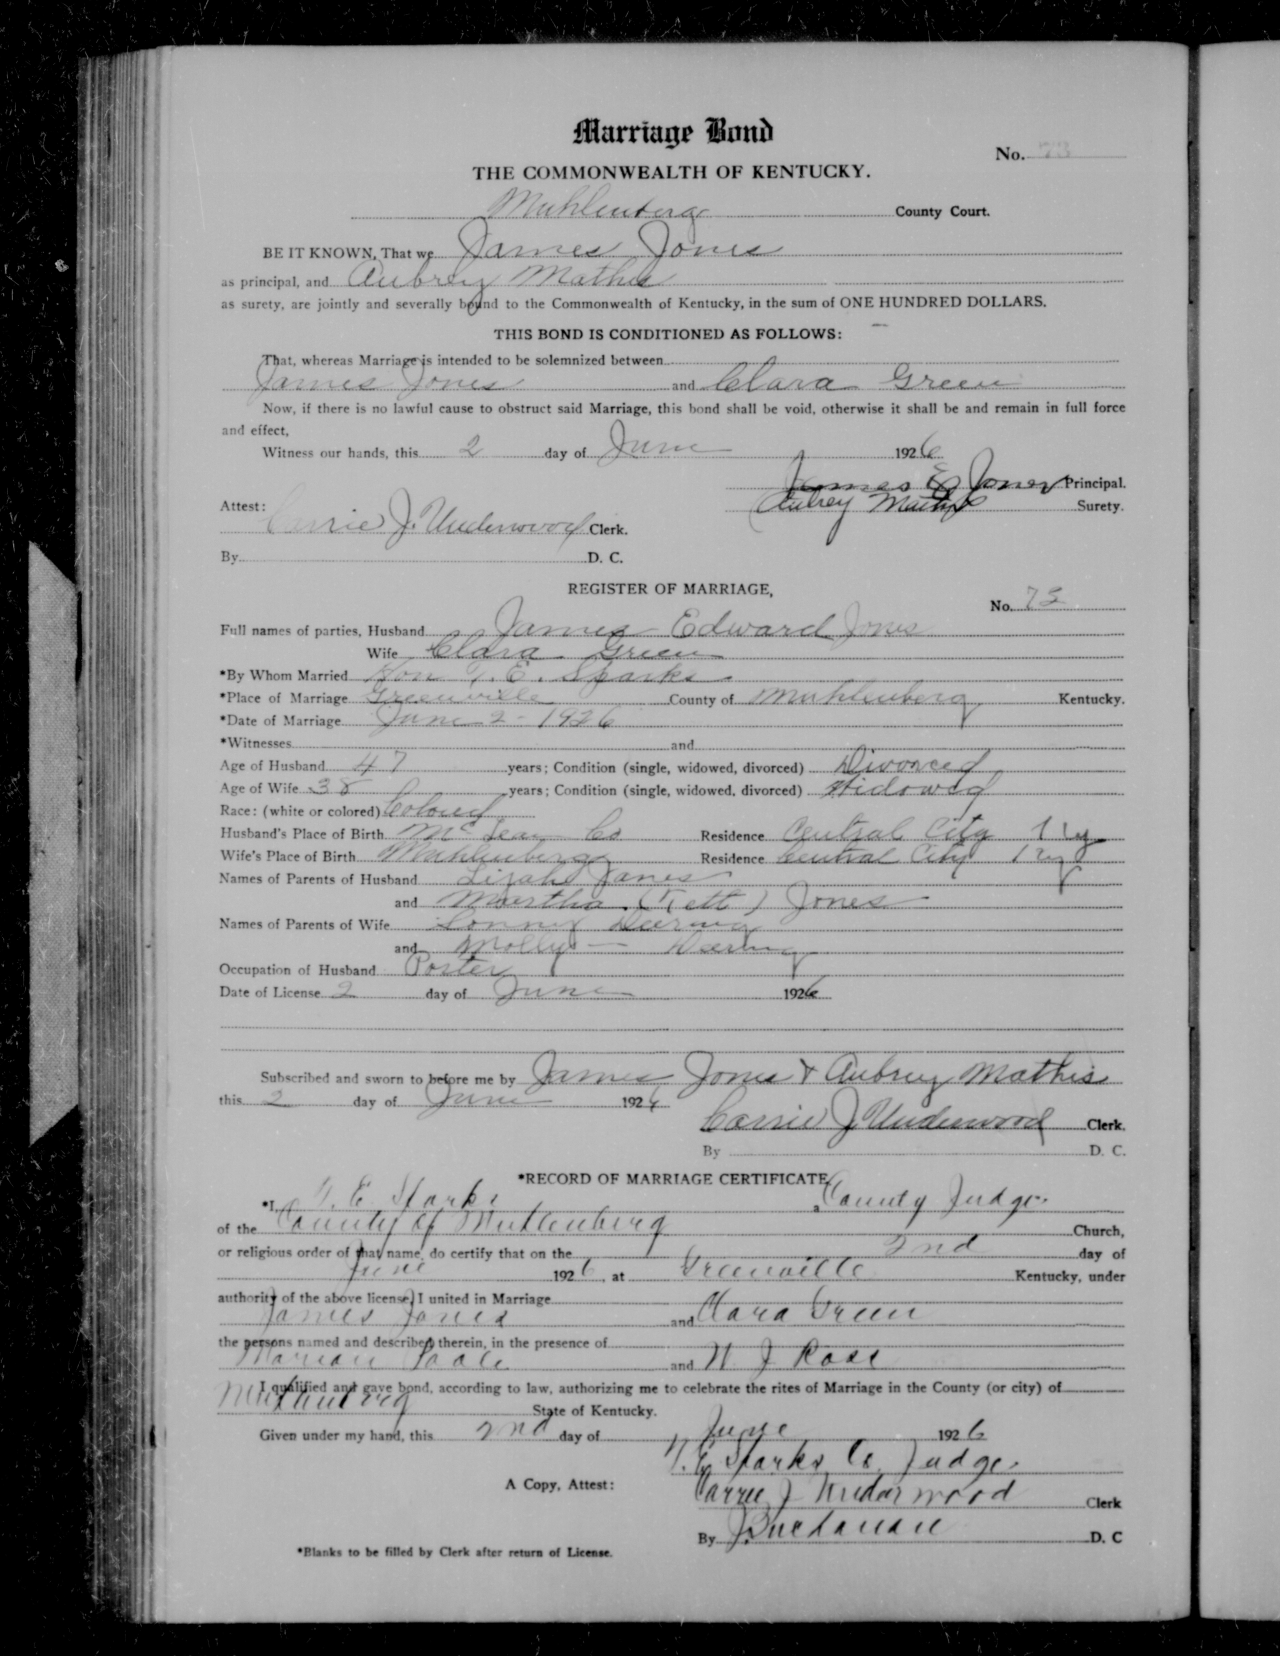 Marriage Bond
No. 73
THE COMMONWEALTH OF KENTUCKY.
Muhlenberg County Court.
BE IT KNOWN, That we James Jones
as principal, and Aubrey Mathis
as surety, are jointly and severally bound to the Commonwealth of Kentucky, in the sum of ONE HUNDRED DOLLARS.
THIS BOND IS CONDITIONED AS FOLLOWS:
That, whereas Marriage is intended to be solemnized between
James Jones and Clara Green
Now, if there is no lawful cause to obstruct said Marriage, this bond shall be void, otherwise it shall be and remain in full force
and effect,
Witness our hands, this 2 day of June 1926
James E Jones Principal.
Attest: Aubrey Mathis Surety.
Carrie J. Underwood Clerk.
By D. C.
REGISTER OF MARRIAGE,
No. 73
Full names of parties, Husband James Edward Jones
Wife Clara Green
*By Whom Married Hon T. E. Sparks
*Place of Marriage Greenville County of Muhlenberg Kentucky.
*Date of Marriage June 2 - 1926
*Witnesses and
Age of Husband 47 years; Condition (single, widowed, divorced) Divorced
Age of Wife 38 years; Condition (single, widowed, divorced) Widowed
Race: (white or colored) Colored
Husband's Place of Birth McLean Co Residence Central City Ky
Wife's Place of Birth Muhlenberg Residence Central City Ky
Names of Parents of Husband Lizah Jones
and Martha (Tett) Jones
Names of Parents of Wife Lonny Dearing
and Molly — Dearing
Occupation of Husband Porter
Date of License 2 day of June 1926
Subscribed and sworn to before me by James Jones & Aubrey Mathis
this 2 day of June 1926
Carrie J. Underwood Clerk.
By D. C.
*RECORD OF MARRIAGE CERTIFICATE
*I, T. E. Sparks, a County Judge
of the County of Muhlenberg Church,
or religious order of that name, do certify that on the 2nd day of
June 1926, at Greenville Kentucky, under
authority of the above license, I united in Marriage
James Jones and Clara Green
the persons named and described therein, in the presence of
Marian and N J Rose
I qualified and gave bond, according to law, authorizing me to celebrate the rites of Marriage in the County (or city) of
Muhlenberg State of Kentucky.
Given under my hand, this 2nd day of June 1926
T. E. Sparks Co. Judge.
A Copy, Attest: Carrie J Underwood Clerk
By J. Buchanan D. C
*Blanks to be filled by Clerk after return of License.